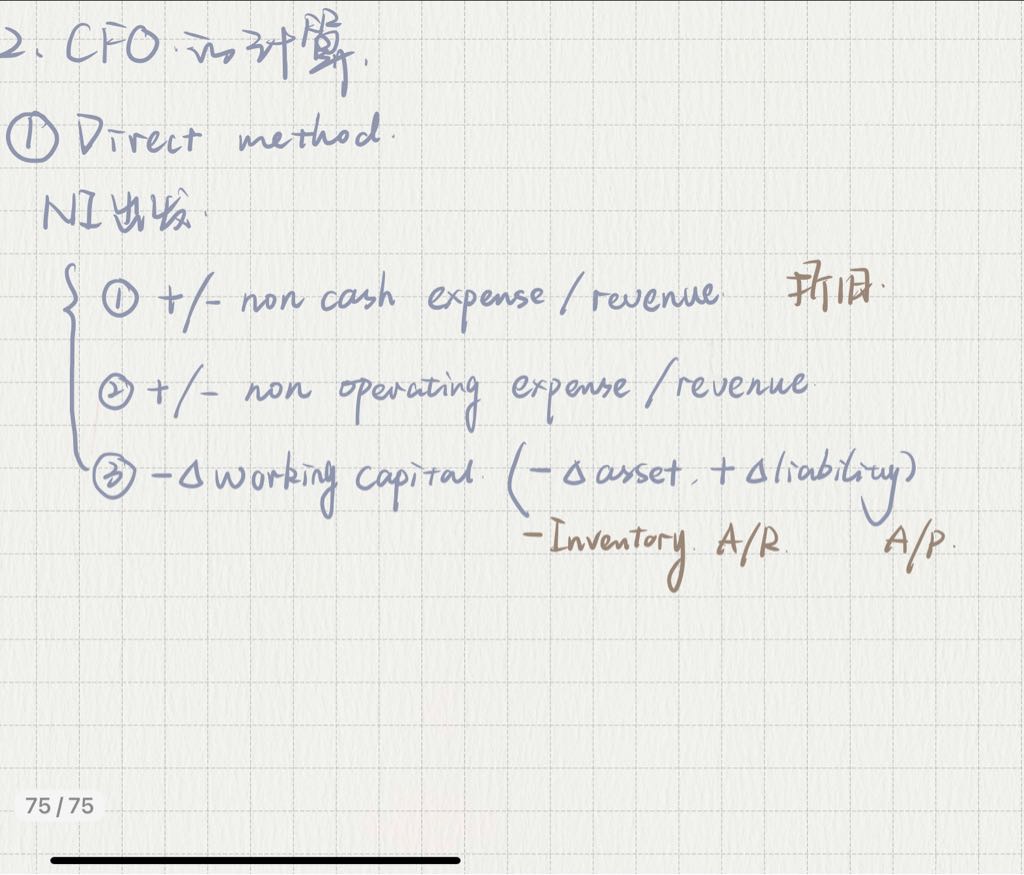 2. CFO 的计算.
① Direct method.
NI出发.
① +/- non cash expense / revenue. 折旧.
② +/- non operating expense / revenue.
③ -Δ working capital. (-Δ asset. +Δ liability)
- Inventory. A/R. A/P.
75 / 75